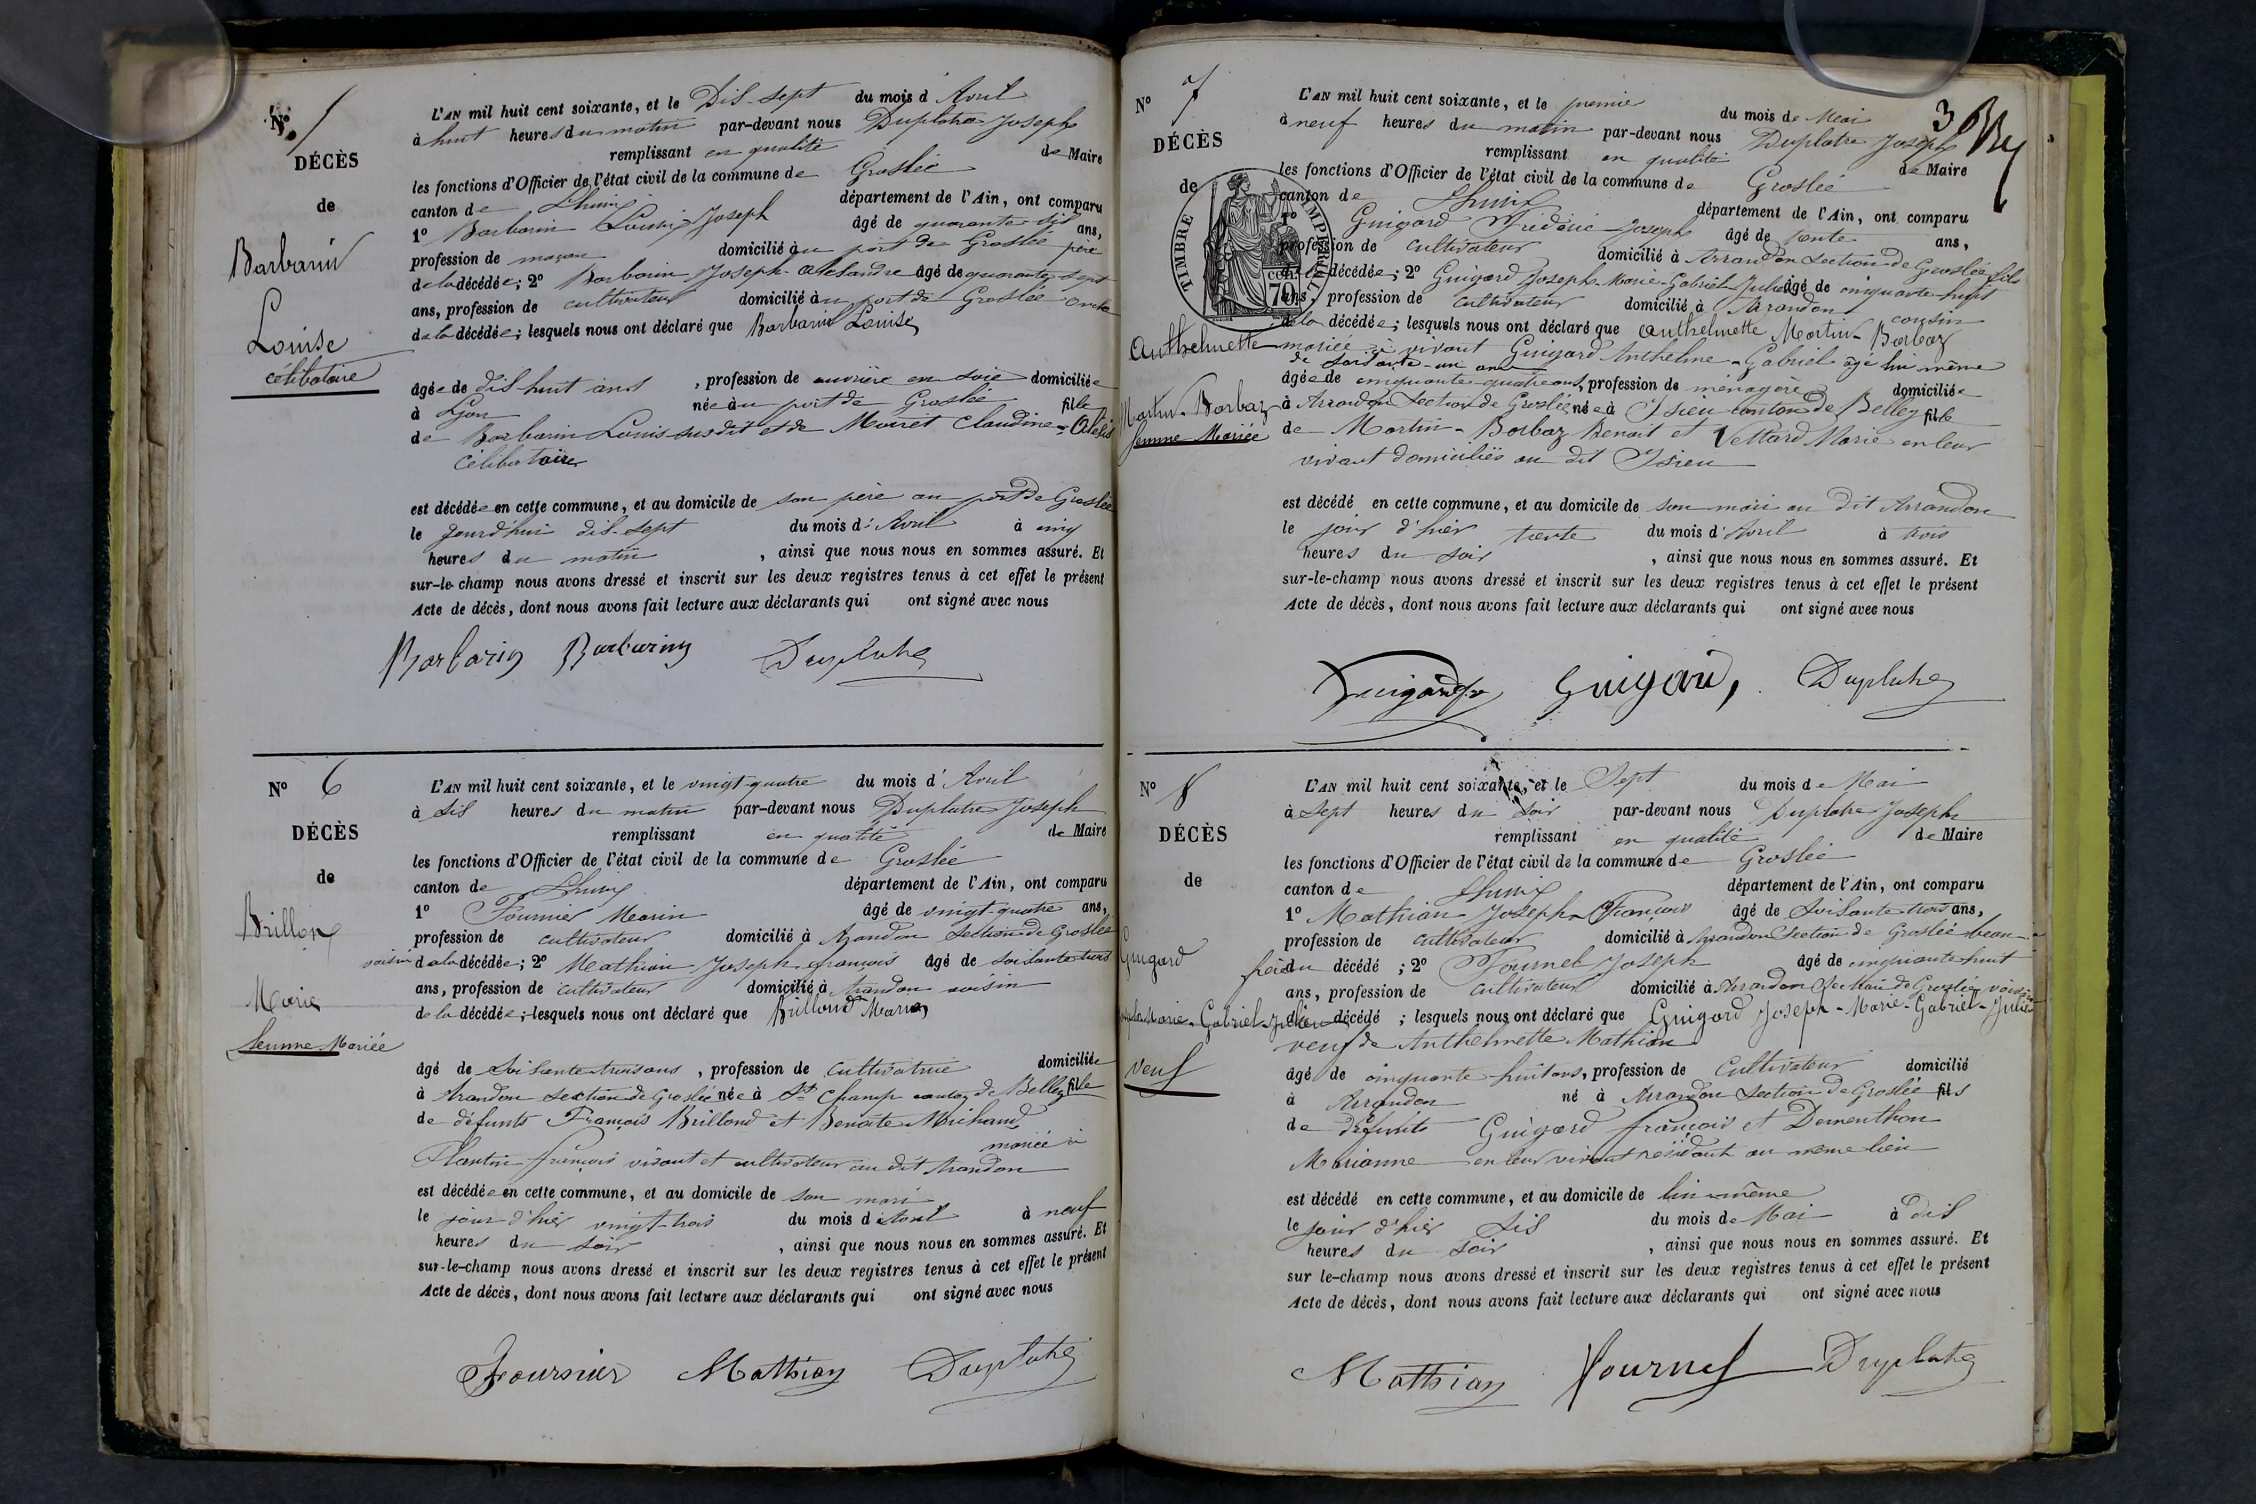 N° 5
DÉCÈS
de
Barbarin
Louise
célibataire
L'AN mil huit cent soixante, et le Dis-sept du mois d'Avril
à huit heures du matin par-devant nous Duplatre Joseph
remplissant en qualité de Maire
les fonctions d'Officier de l'état civil de la commune de Groslée
canton de Lhuis département de l'Ain, ont comparu
1° Barbarin Louis Joseph âgé de quarante six ans,
profession de maçon domicilié au port de Groslée père
de la décédée; 2° Barbarin Joseph-Alexandre âgé de quarante sept
ans, profession de cultivateur domicilié au port de Groslée oncle
de la décédée; lesquels nous ont déclaré que Barbarin Louise
âgée de dis-huit ans, profession de ouvrière en soie domiciliée
à Lyon née au port de Groslée fille
de Barbarin Louis susdit et de Moiret Claudine
Célibataire
est décédée en cette commune, et au domicile de son père au port de Groslée
le jourd'hui dis-sept du mois d'Avril à cinq
heures du matin, ainsi que nous nous en sommes assuré. Et
sur-le-champ nous avons dressé et inscrit sur les deux registres tenus à cet effet le présent
Acte de décès, dont nous avons fait lecture aux déclarants qui ont signé avec nous
Barbarin Barbarin Duplatre
N° 6
DÉCÈS
de
Brillon
Marie
femme Mariée
L'AN mil huit cent soixante, et le vingt-quatre du mois d'Avril
à sis heures du matin par-devant nous Duplatre Joseph
remplissant en qualité de Maire
les fonctions d'Officier de l'état civil de la commune de Groslée
canton de Lhuis département de l'Ain, ont comparu
1° Fournier Marin âgé de vingt-quatre ans,
profession de cultivateur domicilié à Arandon section de Groslée
voisin de la décédée; 2° Mathian Joseph-françois âgé de soisante trois
ans, profession de cultivateur domicilié à Arandon voisin
de la décédée; lesquels nous ont déclaré que Brilloud Marie
âgé de Soisante trois ans, profession de Cultivatrice domiciliée
à Arandon section de Groslée née à St Champ canton de Belley fille
de défunts François Brilloud et Benoite Michaud
mariée à
Plantin françois vivant et cultivateur au dit Arandon
est décédée en cette commune, et au domicile de son mari
le jour d'hier vingt-trois du mois d'Avril à neuf
heures du soir, ainsi que nous nous en sommes assuré. Et
sur-le-champ nous avons dressé et inscrit sur les deux registres tenus à cet effet le présent
Acte de décès, dont nous avons fait lecture aux déclarants qui ont signé avec nous
Fournier Mathian Duplatre
3
N° 7
DÉCÈS
de
TIMBRE IMPERIAL
70 cent.
Anthelmette
Martin-Barbaz
femme Mariée
L'AN mil huit cent soixante, et le premier du mois de Mai
à neuf heures du matin par-devant nous Duplatre Joseph
remplissant en qualité de Maire
les fonctions d'Officier de l'état civil de la commune de Groslée
canton de Lhuis département de l'Ain, ont comparu
1° Guigard Fréderic-Joseph âgé de trente ans,
profession de cultivateur domicilié à Arrandon Section de Groslée fils
de la décédée; 2° Guigard Joseph-Marie-Gabriel-Julien âgé de cinquante-huit
ans, profession de cultivateur domicilié à Arrandon cousin
de la décédée; lesquels nous ont déclaré que Anthelmette Martin-Barbaz
mariée à vivant Guigard Anthelme-Gabriel âgé lui même
de soisante-un ans
âgée de cinquante-quatre ans, profession de ménagère domiciliée
à Arrandon Section de Groslée née à Isieu canton de Belley fille
de Martin-Barbaz Benoit et Vettard Marie en leur
vivant domiciliés au dit Isieu
est décédé en cette commune, et au domicile de son mari au dit Arrandon
le jour d'hier trente du mois d'Avril à trois
heures du soir, ainsi que nous nous en sommes assuré. Et
sur-le-champ nous avons dressé et inscrit sur les deux registres tenus à cet effet le présent
Acte de décès, dont nous avons fait lecture aux déclarants qui ont signé avec nous
Guigard Guigard, Duplatre
N° 8
DÉCÈS
de
Guigard
Marie-Gabriel-Julien
veuf
L'AN mil huit cent soixante, et le Sept du mois de Mai
à Sept heures du soir par-devant nous Duplatre Joseph
remplissant en qualité de Maire
les fonctions d'Officier de l'état civil de la commune de Groslée
canton de Lhuis département de l'Ain, ont comparu
1° Mathian Joseph-François âgé de Soisante trois ans,
profession de cultivateur domicilié à Arrandon Section de Groslée beau-
frère du décédé; 2° Fournel Joseph âgé de cinquante huit
ans, profession de cultivateur domicilié à Arrandon Section de Groslée voisin
du décédé; lesquels nous ont déclaré que Guigard Joseph-Marie-Gabriel-Julien
veuf de Anthelmette Mathian
âgé de cinquante-huit ans, profession de Cultivateur domicilié
à Arrandon né à Arrandon Section de Groslée fils
de défunts Guigard françois et Dementhon
Marianne en leur vivant résidant au même lieu
est décédé en cette commune, et au domicile de lui-même
le jour d'hier sis du mois de Mai à dis
heures du soir, ainsi que nous nous en sommes assuré. Et
sur le-champ nous avons dressé et inscrit sur les deux registres tenus à cet effet le présent
Acte de décès, dont nous avons fait lecture aux déclarants qui ont signé avec nous
Mathian Fournel Duplatre